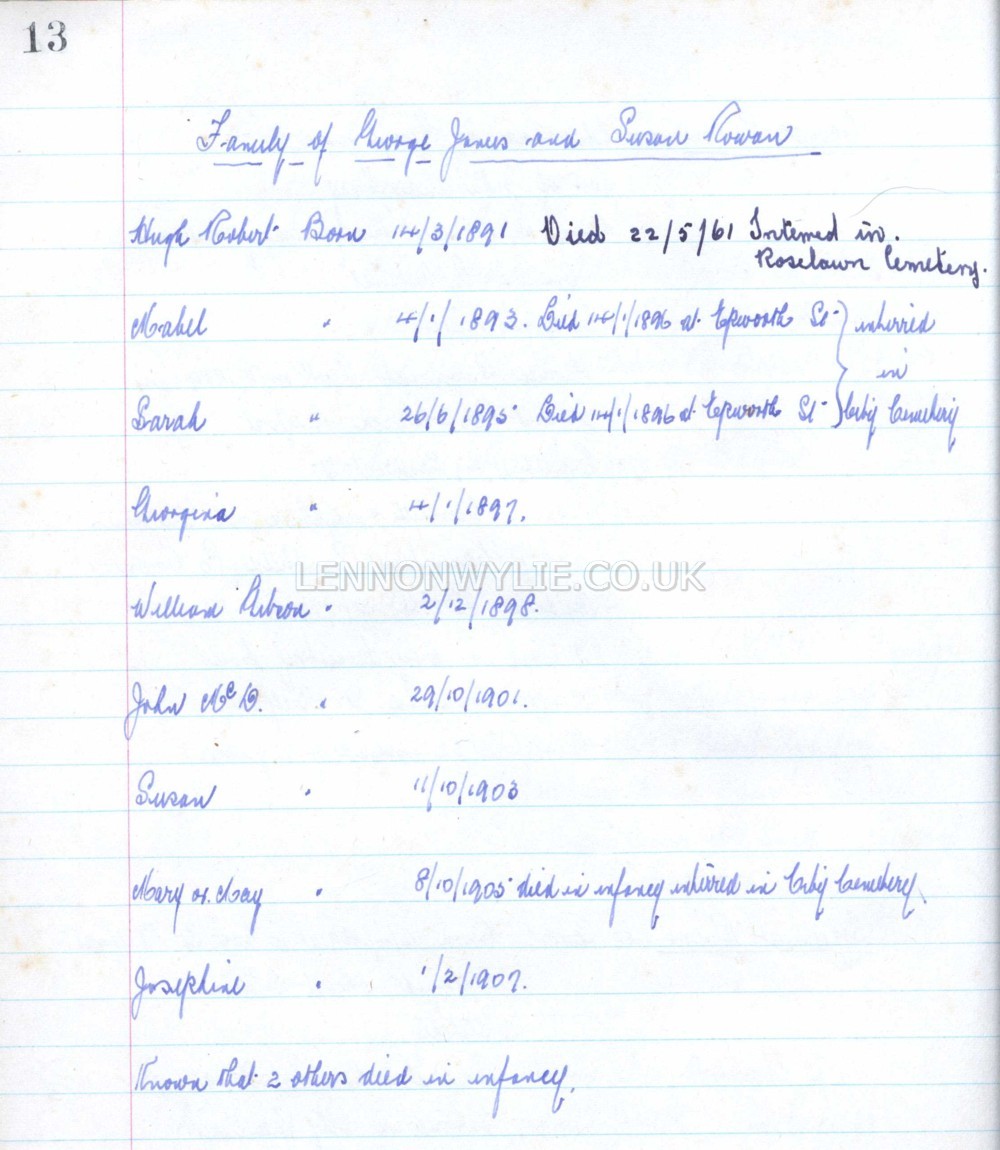 13
Family of George James and Susan Rowan
Hugh Robert Born 14/3/1891 Died 22/5/61 Interned in.
Roselawn Cemetery.
Mabel " 4/1/1893. Died 14/1/1896 at Epworth St } interred
in
Sarah " 26/6/1895 Died 14/1/1896 at Epworth St } City Cemetery
Georgina " 4/1/1897.
LENNONWYLIE.CO.UK
William Gibson " 2/12/1898.
John McD. " 29/10/1901.
Susan " 11/10/1903
Mary or May " 8/10/1905 died in infancy interred in City Cemetery.
Josephine " 1/2/1907.
Known that 2 others died in infancy.